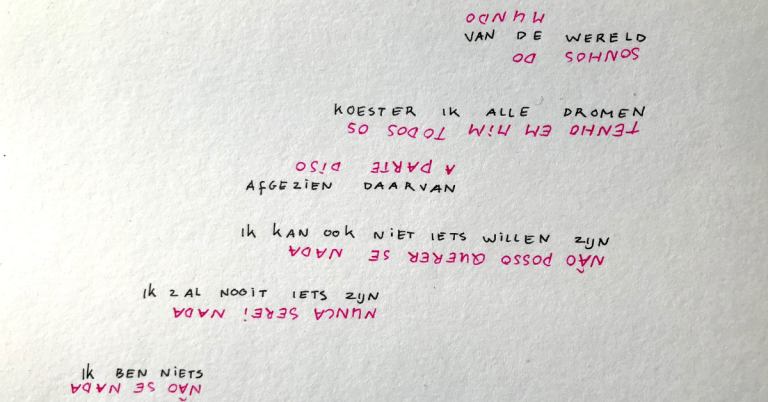 MUNDO
VAN DE WERELD
SONHOS DO
KOESTER IK ALLE DROMEN
TENHO EM MIM TODOS OS
A PARTE DISO
AFGEZIEN DAARVAN
IK KAN OOK NIET IETS WILLEN ZIJN
NÃO POSSO QUERER SE NADA
IK ZAL NOOIT IETS ZIJN
NUNCA SEREI NADA
IK BEN NIETS
NÃO SE NADA